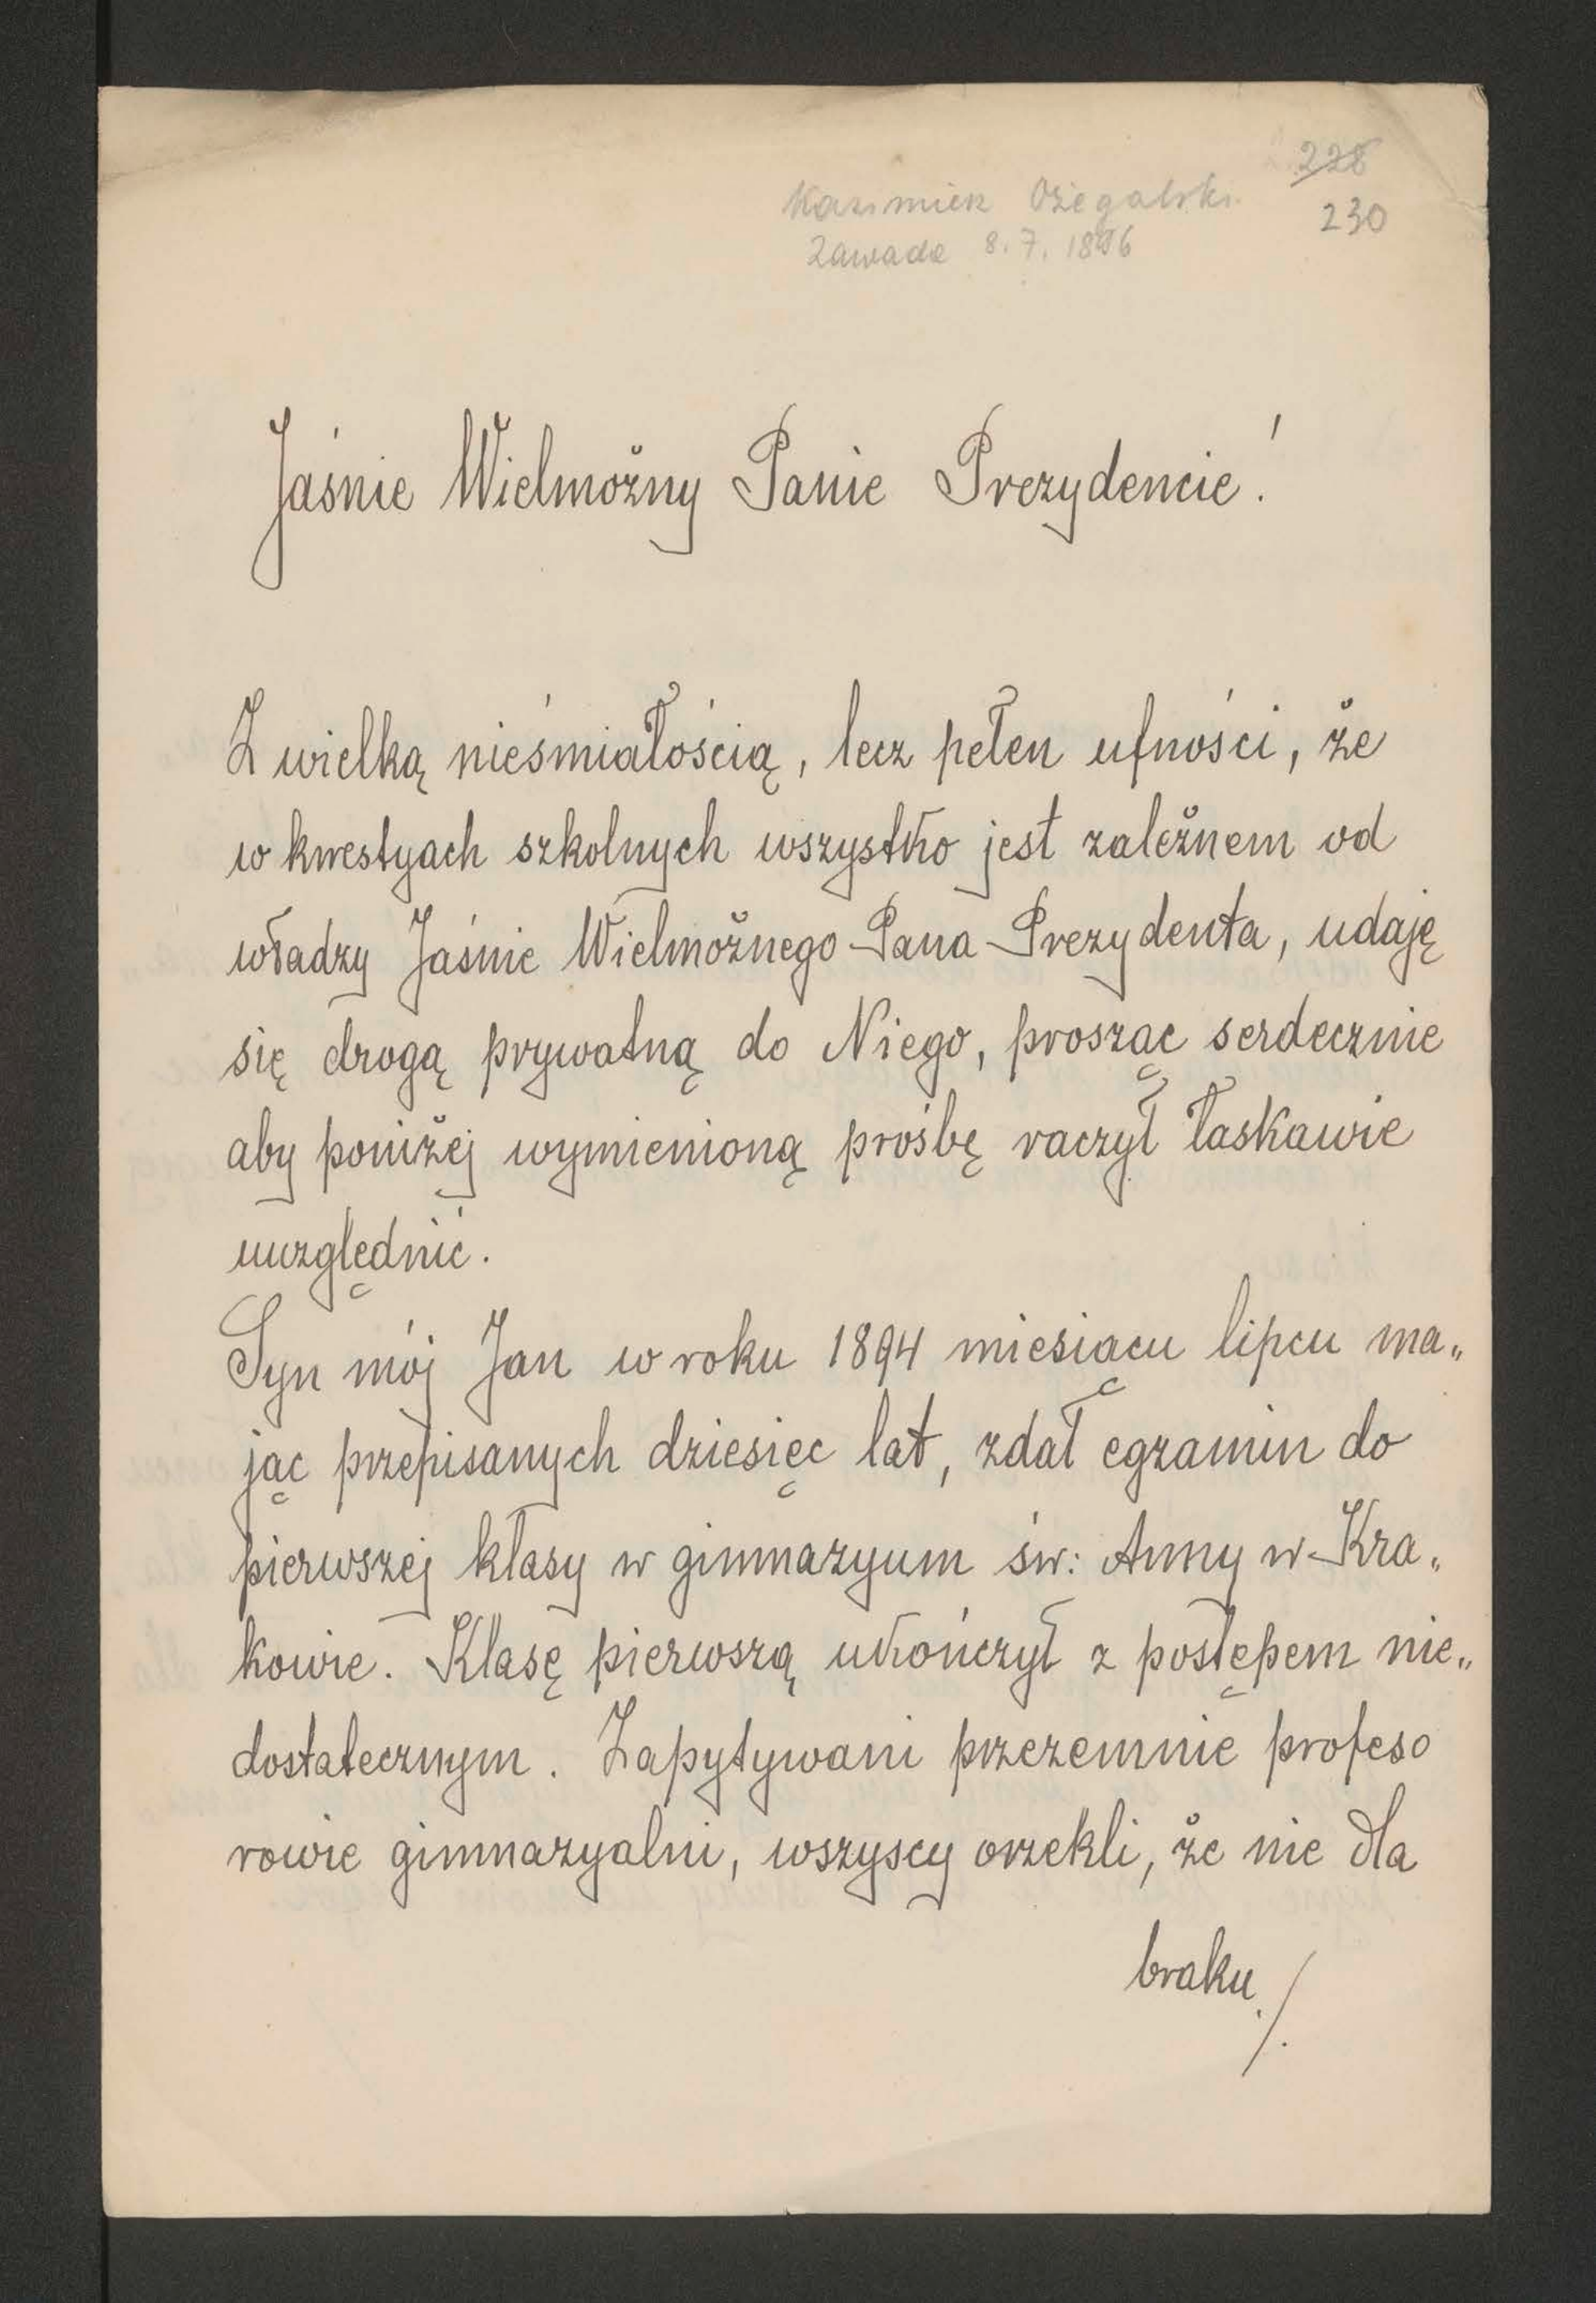 228
Kazimierz Ożegalski
230
Zawada 8.7.1896
Jaśnie Wielmożny Panie Prezydencie!
Z wielką nieśmiałością, lecz pełen ufności, że
w kwestyach szkolnych wszystko jest zależnem od
władzy Jaśnie Wielmożnego Pana Prezydenta, udaję
się drogą prywatną do Niego, prosząc serdecznie
aby poniżej wymienioną prośbę raczył łaskawie
uwzględnić.
Syn mój Jan w roku 1894 miesiącu lipcu ma„
jąc przepisanych dziesięc lat, zdał egzamin do
pierwszej klasy w gimnazyum św: Anny w Kra„
kowie. Klasę pierwszą ukończył z postępem nie„
dostatecznym. Zapytywani przezemnie profeso
rowie gimnazyalni, wszyscy orzekli, że nie dla
braku ./.